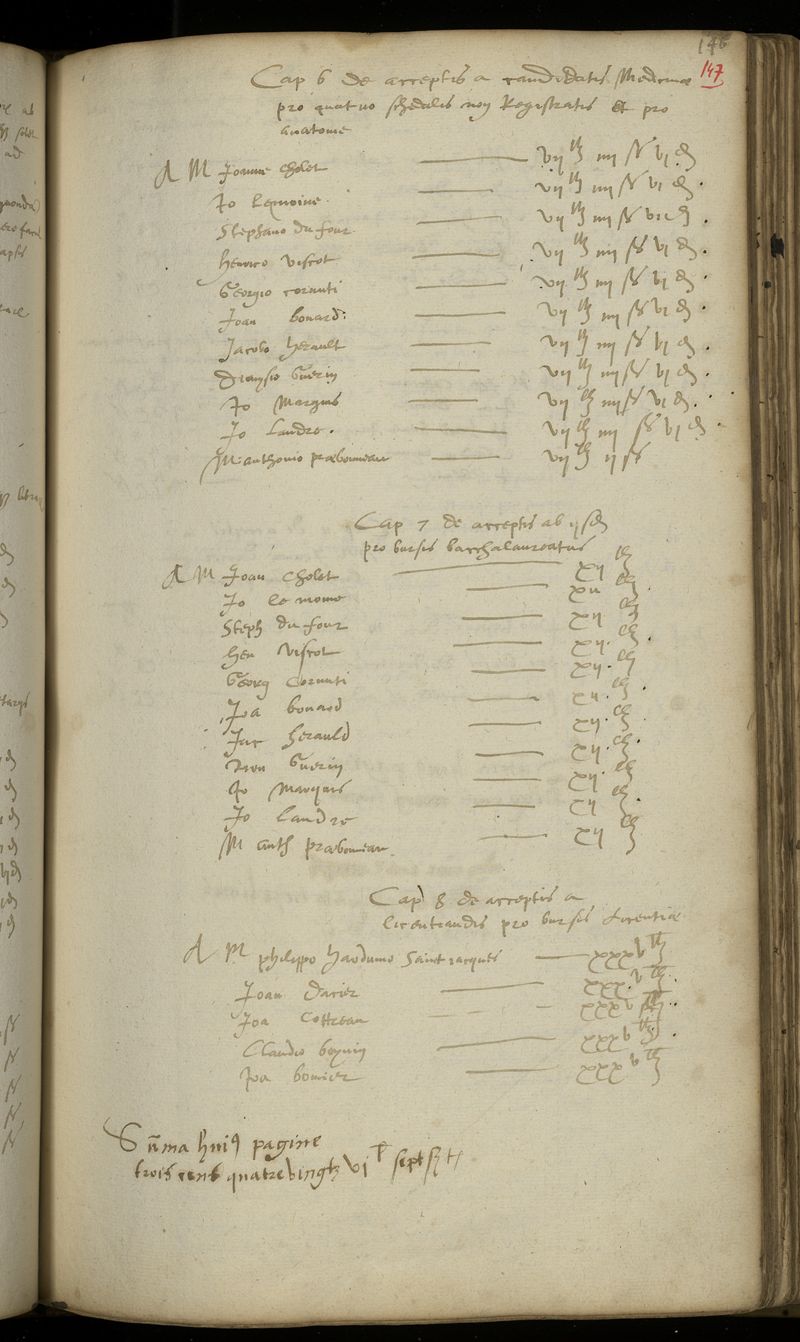 146
147
Cap 6 de acceptis a candidatis Medicinae
pro quatuor schedulis non Registratis et pro
anatome
A M Joanne Cholet —— vij lb iiij ss vj d
Jo Lemoine —— vij lb iiij ss vj d
Stephano du four —— vij lb iiij ss vij d
Henrico Viscot —— vij lb iiij ss vj d
Georgio cornuti —— vij lb iiij ss vj d
Joan bonard —— vij lb iiij ss vj d
Jacobo herault —— vij lb iiij ss vj d
Dionysio Guerin —— vij lb iiij ss vj d
Jo Marquis —— vij lb iiij ss vj d
Jo Landre —— vij lb iiij ss vj d
M anthonio prabonneau —— vij lb ij ss
Cap 7 de acceptis ab ijsd
pro bursis bacchalaureatus
A M Joan Cholet —— xij lb
Jo le moine —— xij lb
Steph du four —— xij lb
hen Viscot —— xij lb
Georg Cornuti —— xij lb
Joa bonard —— xij lb
Jac herauld —— xij lb
Dion Guerin —— xij lb
Jo Marquis —— xij lb
Jo Landre —— xij lb
M anth prabonneau —— xij lb
Cap 8 de acceptis a
licentiandis pro bursis licentiae
A M philippo harduino Sainct jacques —— xxxv lb
Joan Darier —— xxxv lb
Joa Cottreau —— xxxv lb
Claudio —— xxxv lb
Joa bonier —— xxxv lb
Summa huius pagine
trois cens quatre vingts vj l sept s